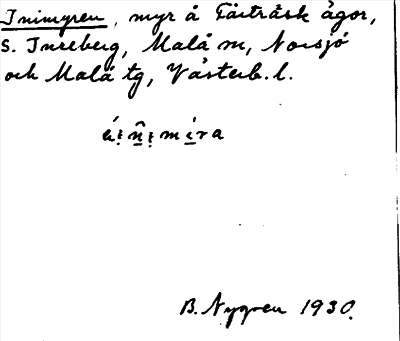 Inimyren, myr å Tärträsk ägor,
S. Inreberg, Malå m, Norsjö
och Malå tg, Västerb. l.
B. Nygren 1930.